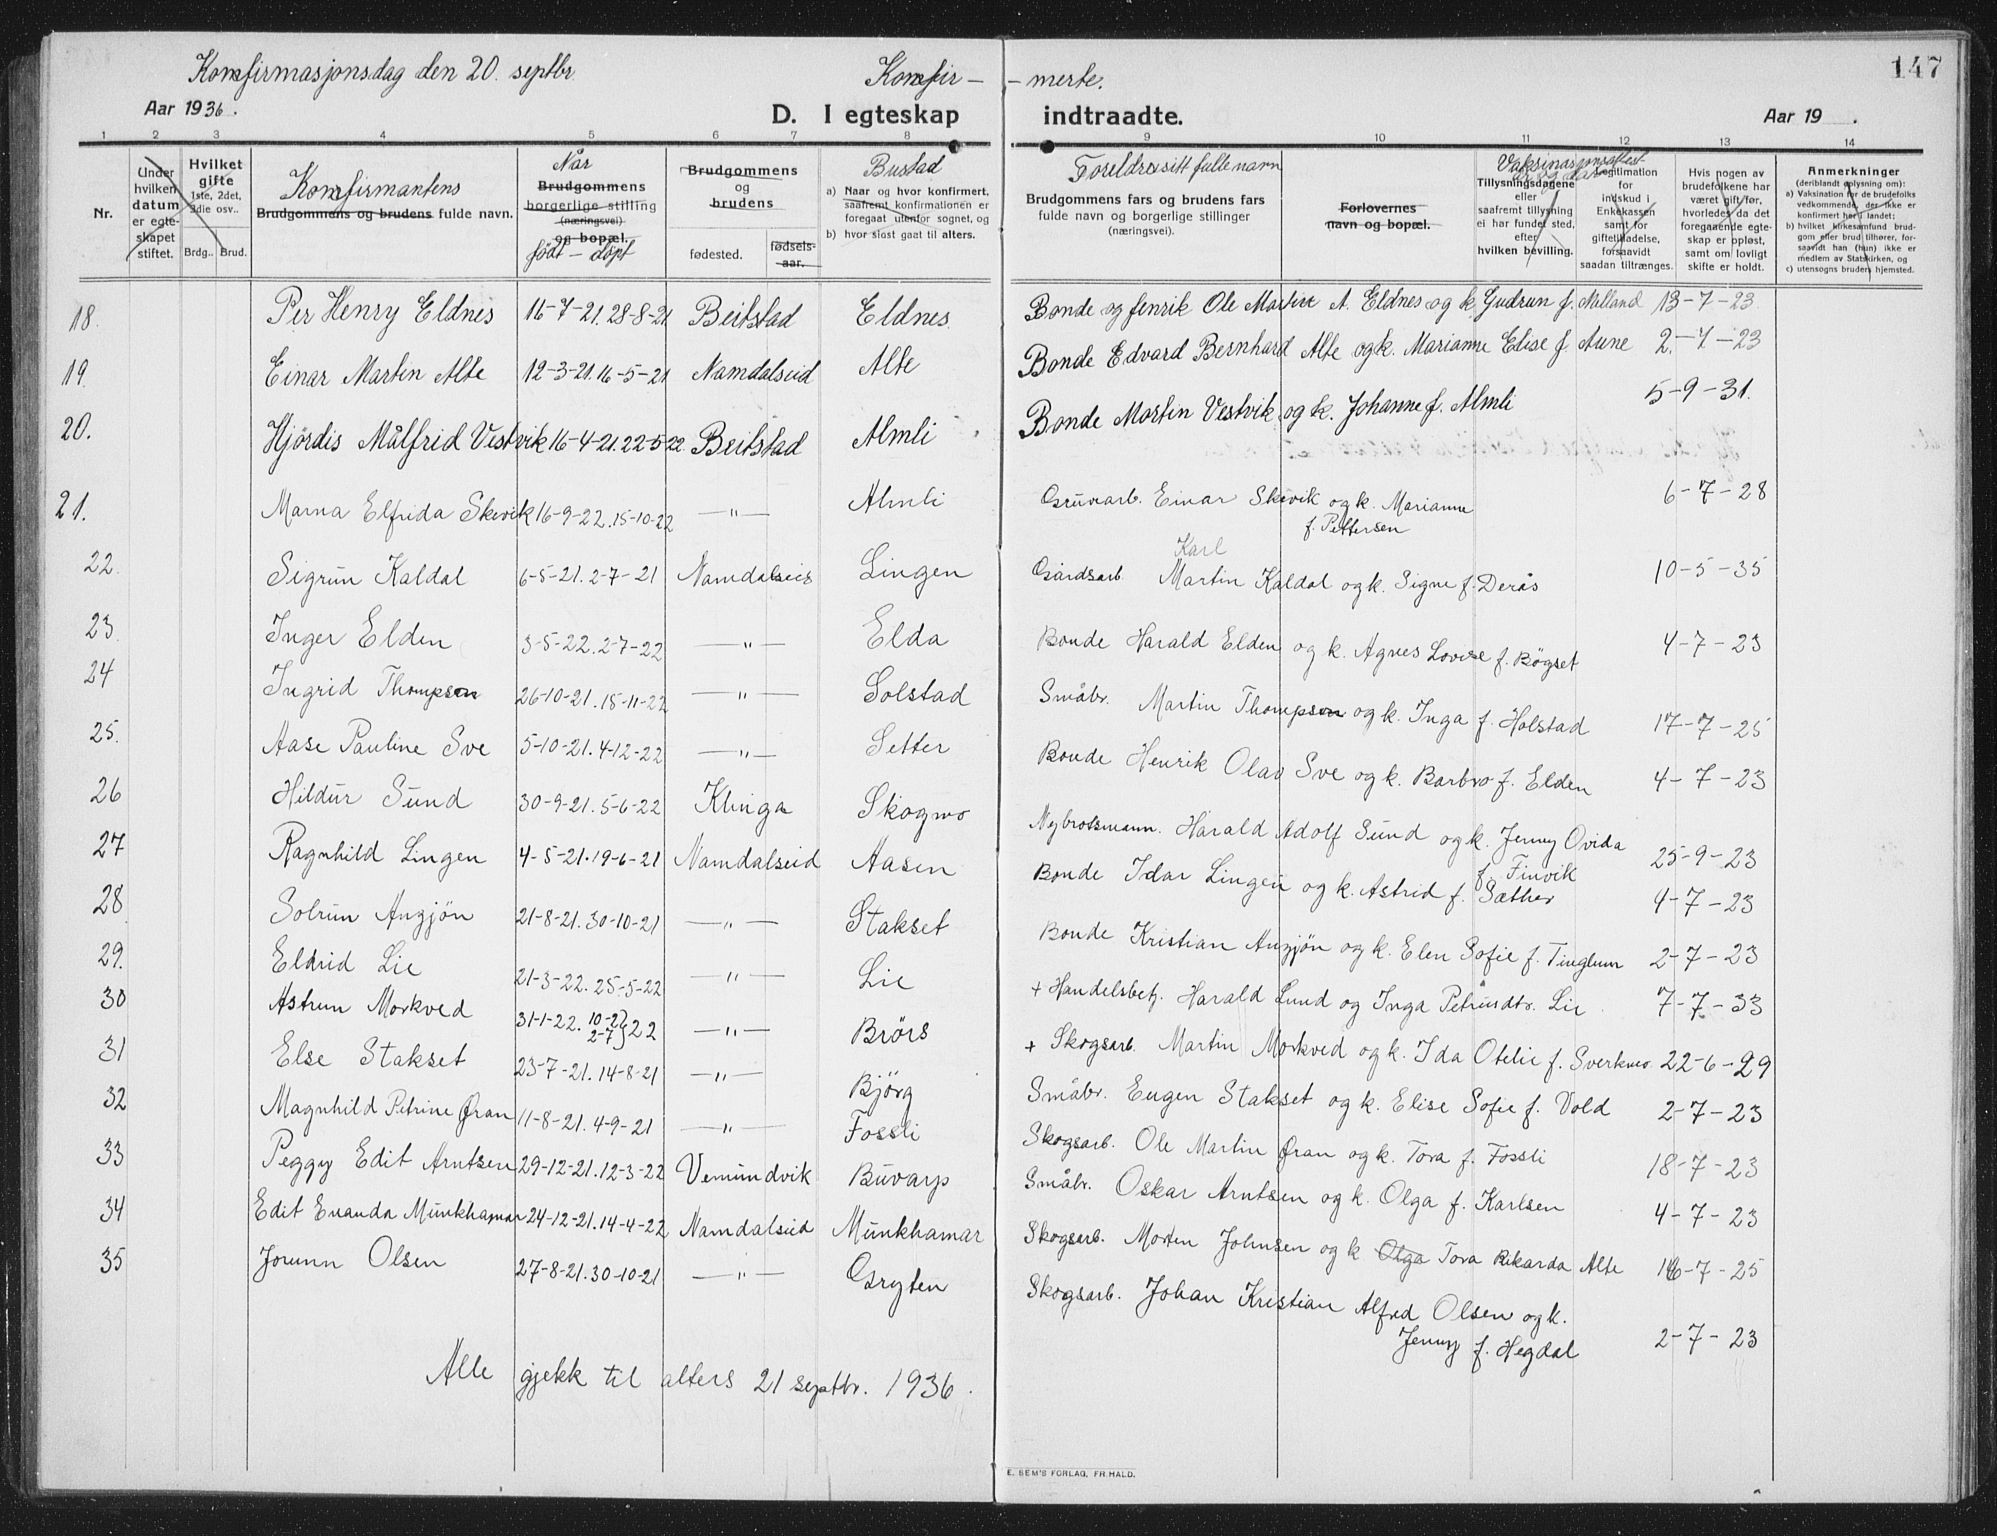 147
Konfirmasjonsdag den 20. septbr
Konfir- -merte.
Aar 1936.
D. I egteskap indtraadte.
Aar 19 .
1 2 3 4 5 6 7 8 9 10 11 12 13 14
Nr.
Under hvilken datum er egteskapet stiftet.
Hvilket gifte 1ste, 2det, 3die osv..
Brdg.. Brud.
Konfirmantens
Brudgommens og brudens fulde navn.
Når
Brudgommens borgerlige stilling (næringsvei) og bopæl.
født - døpt
Brudgommens og brudens
fødested.
fødsels-aar.
Bustad
a) Naar og hvor konfirmert, saafremt konfirmationen er foregaat utenfor sognet, og
b) hvor sidst gaat til alters.
Foreldra sitt fulle navn
Brudgommens fars og brudens fars fulde navn og borgerlige stillinger (næringsvei).
Forlovernes navn og bopæl.
Vaksinasjonsattest
Tillysningsdagene eller saafremt tillysning ei har fundet sted, efter hvilken bevilling.
Legitimation for indskud i Enkekassen samt for giftetilladelse, forsaavidt saadan tiltrænges.
Hvis nogen av brudefolkene har været gift før, hvorledes da det foregaaende egteskap er opløst, samt om lovligt skifte er holdt.
Anmerkninger
(deriblandt oplysning om):
a) Vaksination for de brudefolks vedkommende, der ikke er konfirmert her i landet;
b) hvilket kirkesamfund brudgom eller brud tilhører, forsaavidt han (hun) ikke er medlem av Statskirken, og
c) utensogns bruders hjemsted.
18. Per Henry Eldnes 16-7-21. 28-8-21 Beitstad Eldnes. Bonde og fenrik Ole Martin A. Eldnes og k. Gudrun f. Melland 13-7-23.
19. Einar Martin Alte 12-3-21. 16-5-21 Namdalseid Alte Bonde Edvard Bernhard Alte og k. Marianne Elise f. Aune 2-7-23
20. Hjørdis Målfrid Vestvik 16-4-21. 22-5-22. Beitstad Almli Bonde Martin Vestvik og k. Johanne f. Almli 5-9-31.
21. Marna Elfrida Skevik 16-9-22. 15-10-22 —"— Almli Gruvarb. Einar Skevik og k. Marianne
f. Pettersen 6-7-28
22. Sigrun Kaldal 6-5-21. 2-7-21 Namdalseid Lingen Gårdsarb. Karl Martin Kaldal og k. Signe f. Derås 10-5-35
23. Inger Elden 3-5-22. 2-7-22 —"— Elda Bonde Harald Elden og k. Agnes Lovise f. Bøgset 4-7-23
24 Ingrid Thompson 26-10-21. 15-11-22 —"— Solstad Småbr. Martin Thompson og k. Inga f. Holstad 17-7-25
25. Aase Pauline Sve 5-10-21. 4-12-22 —"— Setter Bonde Henrik Olav Sve og k. Barbro f. Elden 4-7-23
26 Hildur Sund 30-9-21. 5-6-22 Klinga Skogmo Nybrotsmann. Harald Adolf Sund og k. Jenny Ovida
f. Finvik 25-9-23
27 Ragnhild Lingen 4-5-21. 19-6-21 Namdalseid Aasen Bonde Idar Lingen og k. Astrid f. Sæther 4-7-23
28 Solrun Anzjøn 21-8-21. 30-10-21 —"— Stakset Bonde Kristian Anzjøn og k. Elen Sofie f. Tinglum 2-7-23
29. Eldrid Lie 21-3-22. 25-5-22 —"— Lie + Handelsbetj. Harald Lund og Inga Petrusdtr. Lie 7-7-33
30 Astrun Morkved 31-1-22. 10-2 2-7}22 —"— Brørs + Skogsarb. Martin Morkved og k. Ida Otelie f. Sverkmo 22-6-29
31 Else Stakset 23-7-21. 14-8-21 —"— Bjørg Småbr. Eugen Stakset og k. Elise Sofie f. Vold 2-7-23
32 Magnhild Petrine Øran 11-8-21. 4-9-21 —"— Fossli Skogsarb. Ole Martin Øran og k. Tora f. Fossli 18-7-23
33 Peggy Edit Arntsen 29-12-21. 12-3-22 Vemundvik Buvarp Småbr. Oskar Arntsen og k. Olga f. Karlsen 4-7-23
34 Edit Evanda Munkhamar 24-12-21. 14-4-22 Namdalseid Munkhamar Skogsarb. Morten Johnsen og k Olga Tora Rikarda Alte 16-7-25
35 Jorunn Olsen 27-8-21. 30-10-21 —"— Gryten Skogsarb. Johan Kristian Alfred Olsen og k.
Jenny f. Hegdal 2-7-23
Alle gjekk til alters 21 septbr. 1936.
E. SEM'S FORLAG, FR.HALD.